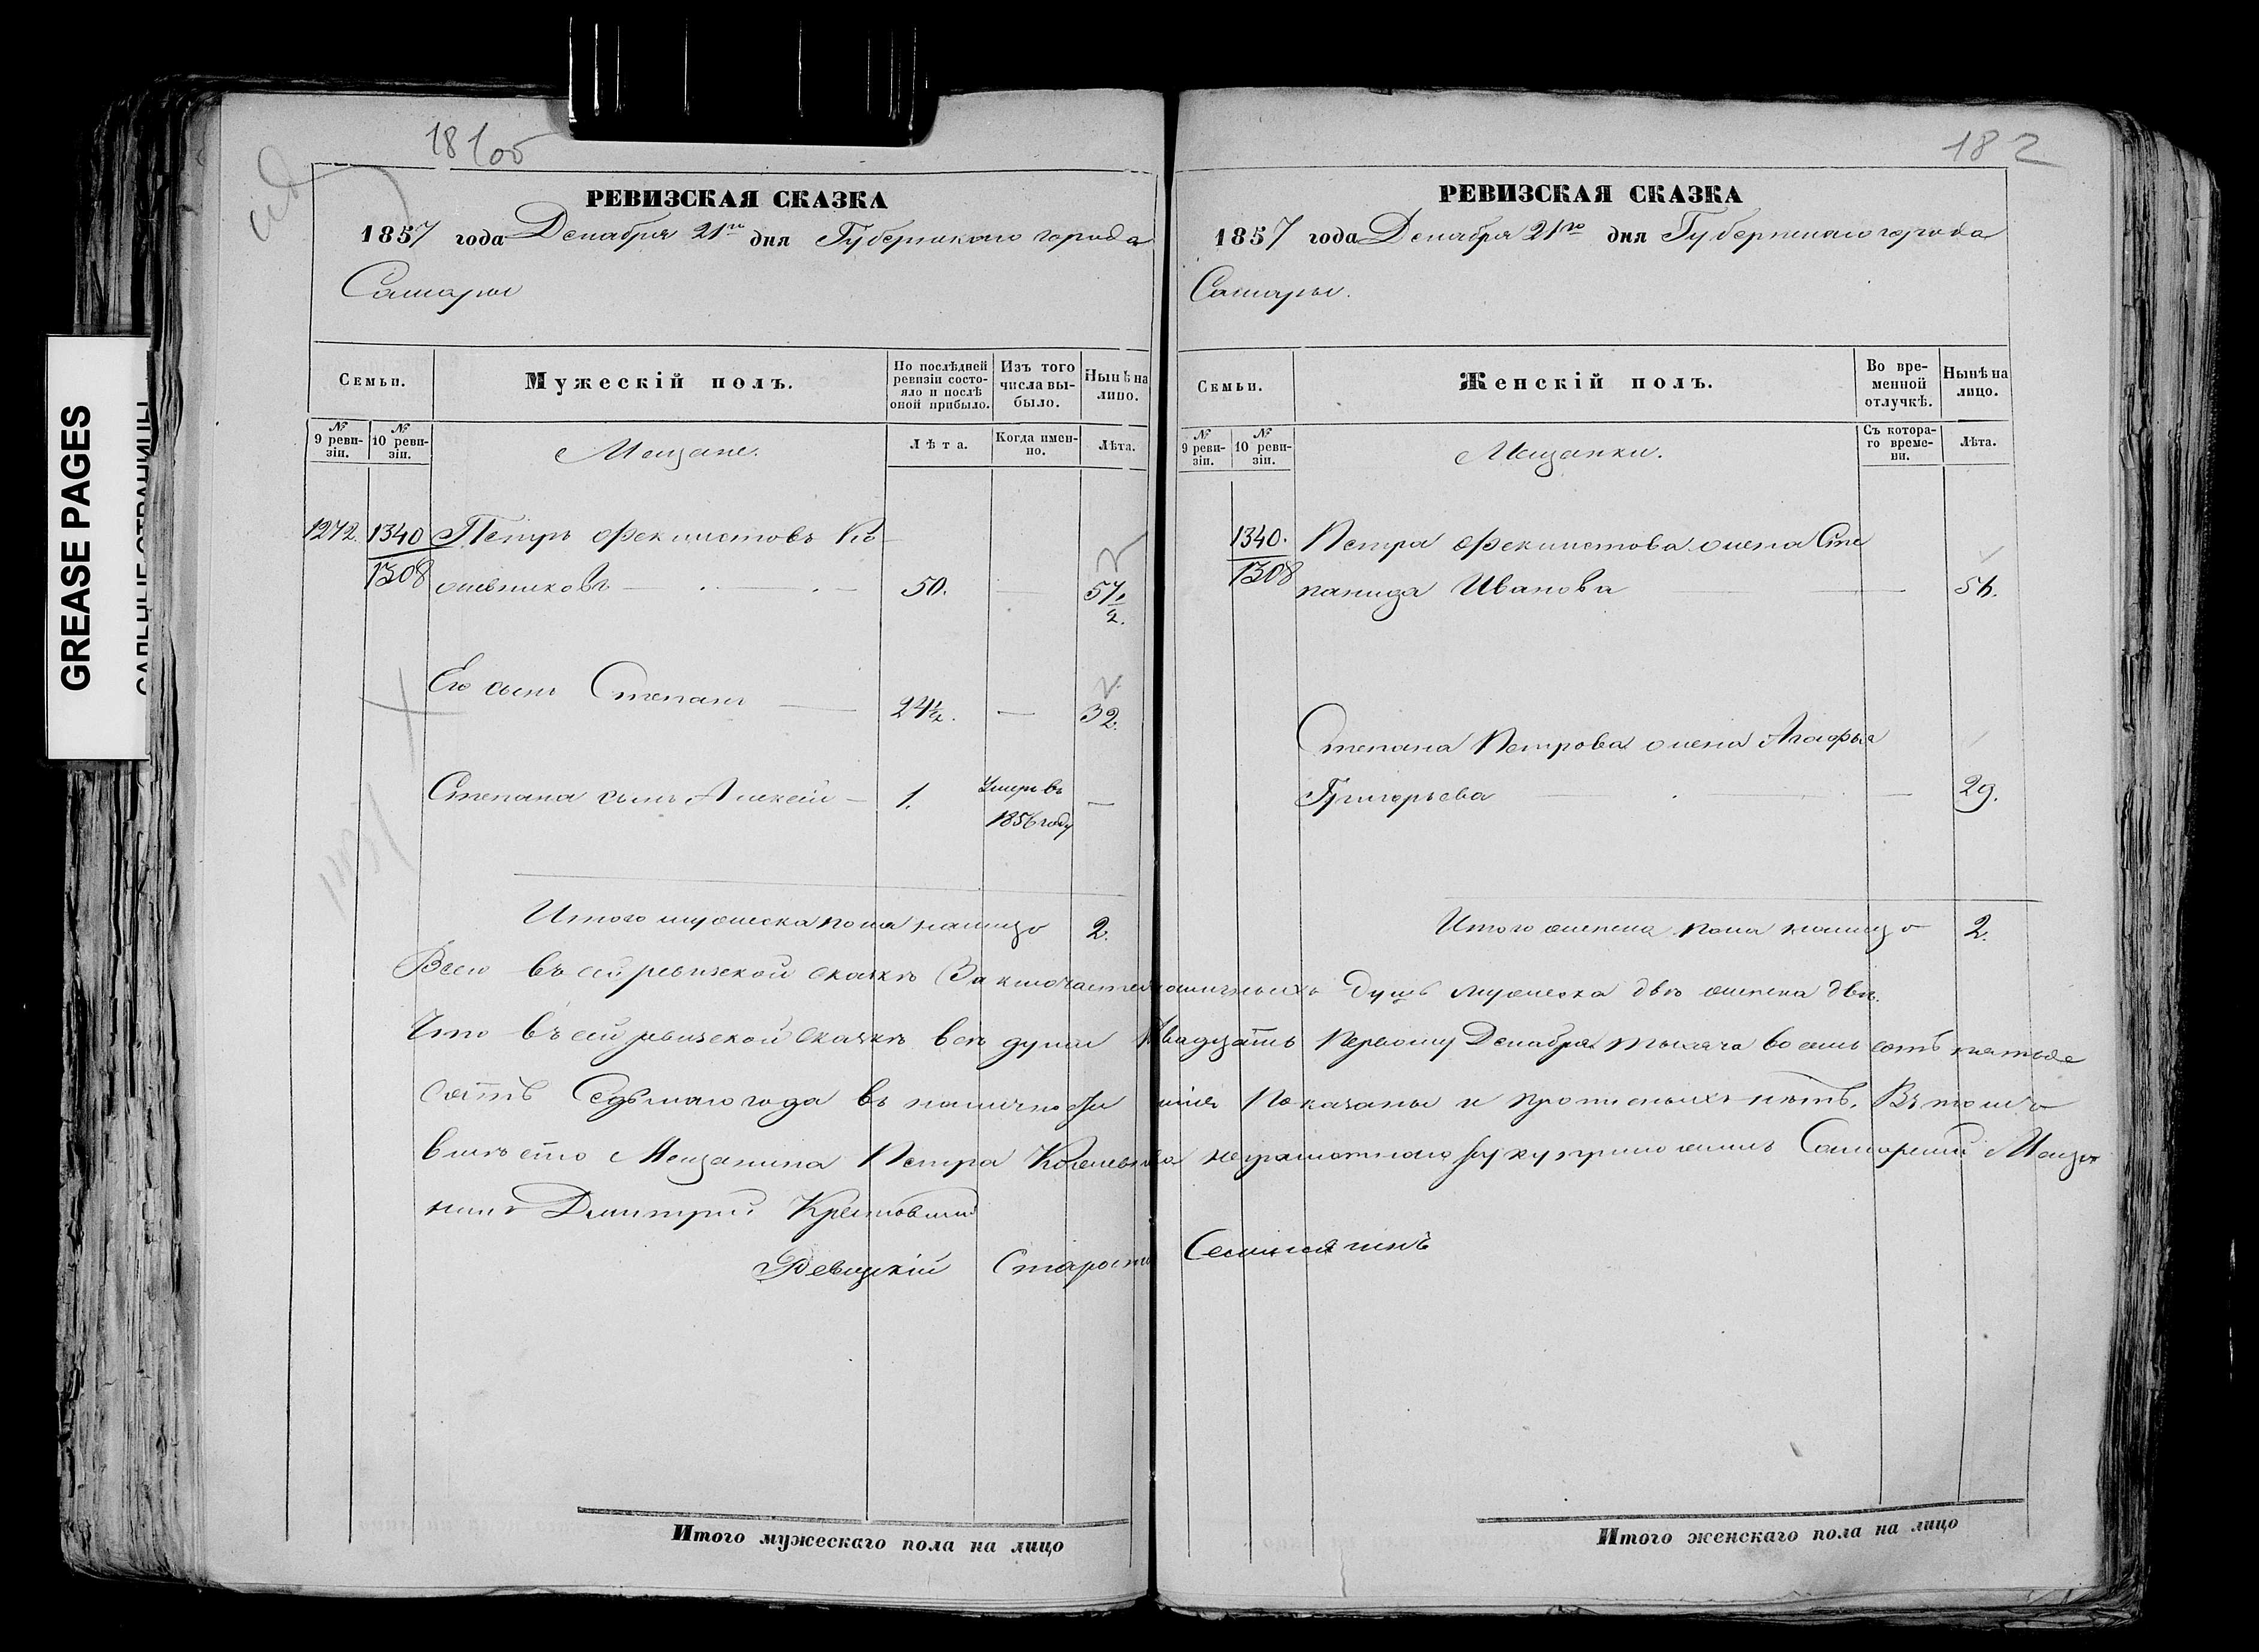 GREASE PAGES
САЛЬНЫЕ СТРАНИЦЫ
181 об
РЕВИЗСКАЯ СКАЗКА
1857 года Декабря 21го дня Губернскаго города
Самары
Семьи.
Мужескій полъ.
По послѣдней ревизіи состояло и послѣ оной прибыло.
Изъ того числа выбыло.
Нынѣ на лицо.
№ 9 ревизіи.
№ 10 ревизіи.
Мещане.
Лѣта.
Когда именно.
Лѣта.
1272. 1340 Петръ Феклистовъ Ко
1308 жевниковъ 50. — 57 1/2.
Его сынъ Степанъ — 24 1/2. — 32.
Степана сынъ Алексей — 1. Умеръ въ 1856 году —
Итого мужеска пола налицо 2.
182
РЕВИЗСКАЯ СКАЗКА
1857 года Декабря 21го дня Губернскаго города
Самары.
Семьи.
Женскій полъ.
Во временной отлучкѣ.
Нынѣ на лицо.
№ 9 ревизіи.
№ 10 ревизіи.
Мещанки.
Съ котораго времени.
Лѣта.
1340. Петра Феклистова жена Сте
1308 панида Иванова — 56.
Степана Петрова жена Агафья
Григорьева — 29.
Итого женска пола налицо 2.
Всего въ сей ревизской сказкѣ заключается наличныхъ душъ мужеска двѣ женска двѣ.
Что въ сей ревизской сказкѣ всѣ души двадцать первому Декабря тысяча восемь сотъ пятьде
сятъ седьмаго года въ наличности показаны и прописныхъ нѣтъ. Въ томъ
вмѣсто Мещанина Петра неграмотнаго руку приложилъ Самарский Меща
нинъ Дмитрий
Ревизскій Староста
Итого мужескаго пола на лицо
Итого женскаго пола на лицо